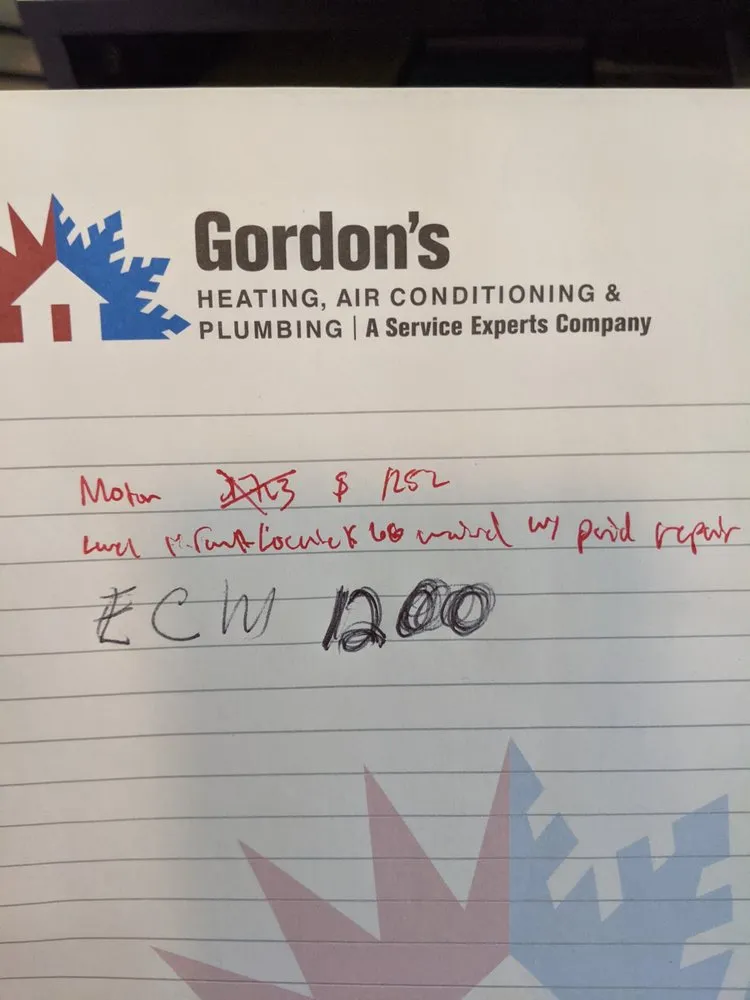 Gordon's
HEATING, AIR CONDITIONING &
PLUMBING | A Service Experts Company
Motor $ 1252
waived w/ paid repair
ECM 1200